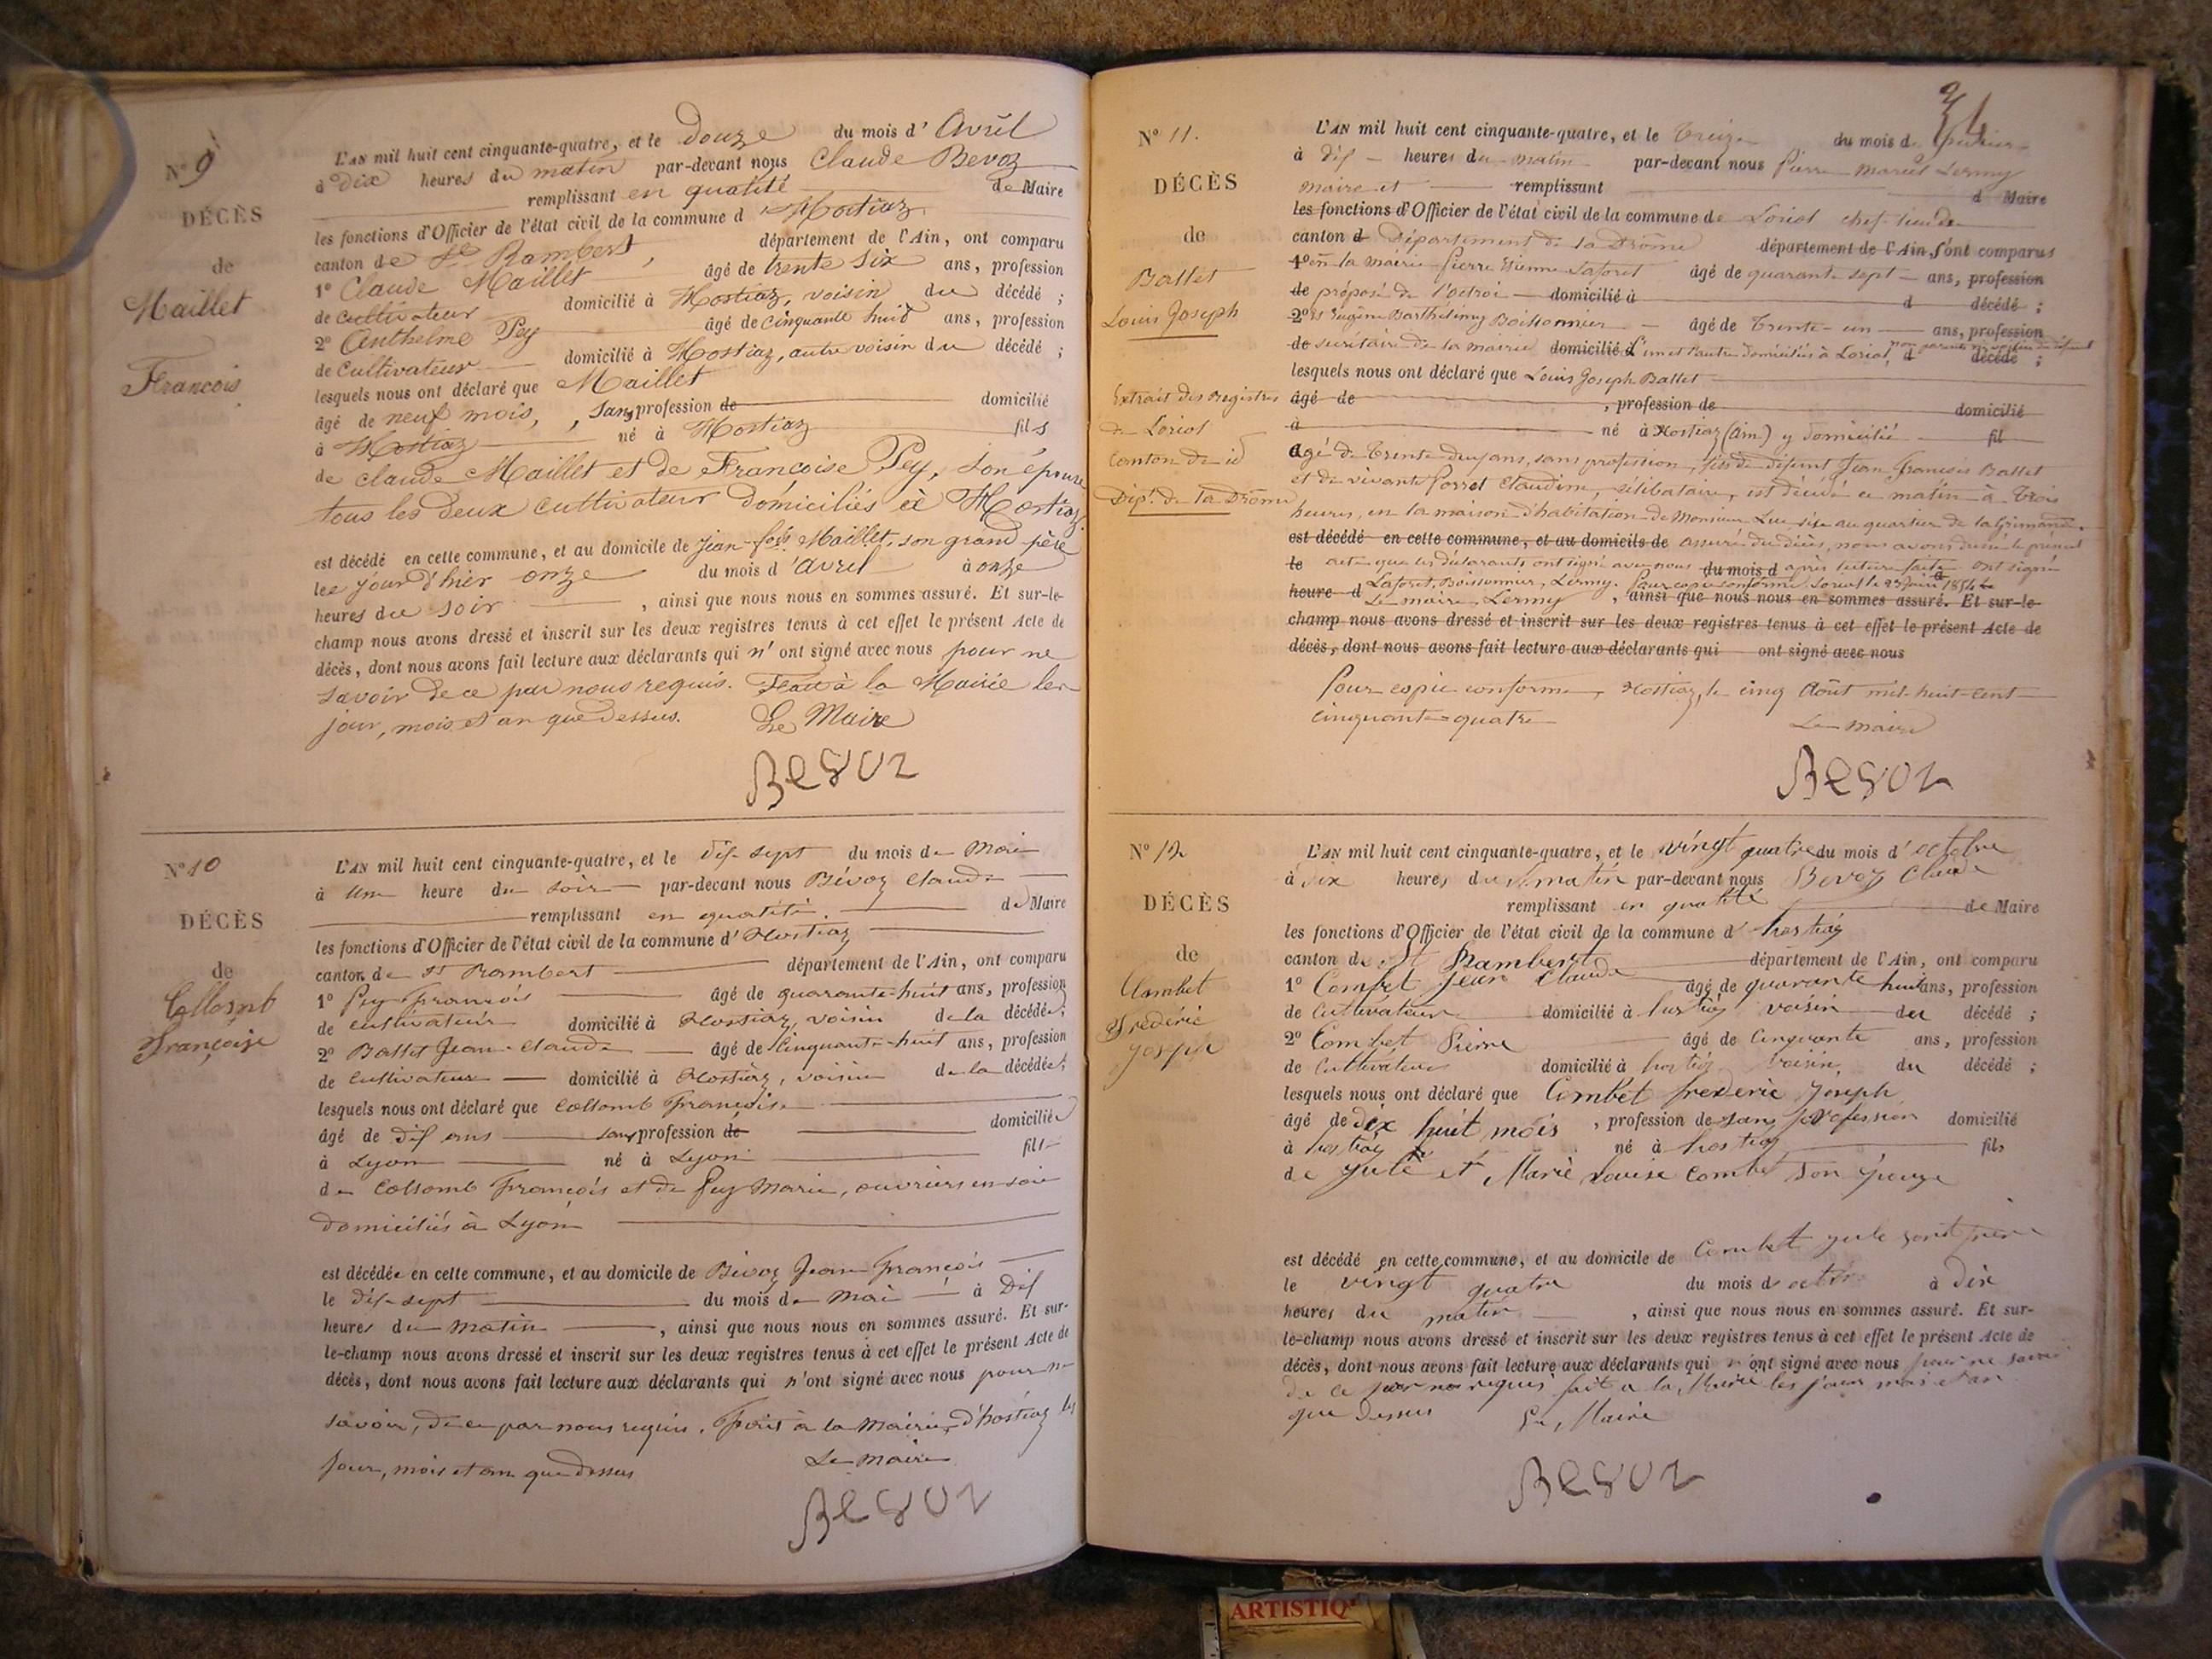 N° 9
DÉCÈS
de
Maillet
François
L'AN mil huit cent cinquante-quatre, et le douze du mois d' Avril
à dix heures du matin par-devant nous Claude Bevoz
remplissant en qualité de Maire
les fonctions d'Officier de l'état civil de la commune d' Hostiaz
canton de St Rambert, département de l'Ain, ont comparu
1° Claude Maillet âgé de trente six ans, profession
de cultivateur domicilié à Hostiaz, voisin du décédé ;
2° Anthelme Pey âgé de cinquante huit ans, profession
de Cultivateur domicilié à Hostiaz, autre voisin du décédé ;
lesquels nous ont déclaré que Maillet
âgé de neuf mois, , sans profession de domicilié
à Hostiaz né à Hostiaz fils
de claude Maillet et de Françoise Pey, son épouse
tous les deux cultivateur domiciliés à Hostiaz
est décédé en cette commune, et au domicile de Jean-fois Maillet, son grand père
le jour d'hier onze du mois d'avril à onze
heures du soir , ainsi que nous nous en sommes assuré. Et sur-le-
champ nous avons dressé et inscrit sur les deux registres tenus à cet effet le présent Acte de
décès, dont nous avons fait lecture aux déclarants qui n'ont signé avec nous pour ne
savoir de ce par nous requis. Fait à la Mairie les
jour, mois et an que dessus. Le Maire
Bevoz
N° 10
DÉCÈS
de
Collomb
Françoise
L'AN mil huit cent cinquante-quatre, et le dix-sept du mois de Mai
à une heure du soir par-devant nous Bévoz Claude
remplissant en qualité de Maire
les fonctions d'Officier de l'état civil de la commune d' Hostiaz
canton de St Rambert département de l'Ain, ont comparu
1° Pey François âgé de quarante-huit ans, profession
de cultivateur domicilié à Hostiaz, voisin de la décédée ;
2° Ballet Jean-Claude âgé de Cinquante-huit ans, profession
de Cultivateur domicilié à Hostiaz, voisin de la décédée ;
lesquels nous ont déclaré que Collomb Françoise
âgé de dix ans sans profession de domiciliée
à Lyon né à Lyon fille
de Collomb François et de Pey Marie, ouvriers en soie
domiciliés à Lyon
est décédée en cette commune, et au domicile de Bévoz Jean-François
le dix-sept du mois de Mai à dix
heures du matin , ainsi que nous nous en sommes assuré. Et sur-
le-champ nous avons dressé et inscrit sur les deux registres tenus à cet effet le présent Acte de
décès, dont nous avons fait lecture aux déclarants qui n'ont signé avec nous pour ne
savoir, de ce par nous requis. Fait à la Mairie d'hostiaz les
jour, mois et an que dessus Le Maire
Bevoz
N° 11.
DÉCÈS
de
Ballet
Louis Joseph
Extrait des registres
de Loriol
Canton de id
Dépt. de la Drôme
L'AN mil huit cent cinquante-quatre, et le Treize du mois de
à dix heures du matin par-devant nous Pierre Marcel Lermy
maire et remplissant d Maire
les fonctions d'Officier de l'état civil de la commune de Loriol chef-lieu de
canton d Département de la Drôme département de l'Ain, sont comparus
1° en la mairie Pierre Etienne Laforet âgé de quarante sept ans, profession
de préposé de l'octroi domicilié à d décédé ;
2° et Eugène Barthélemy Boissonnier âgé de Trente-un ans, profession
de secrétaire de la mairie domicilié à l'un et l'autre domiciliés à Loriol, non parents ni voisins du défunt d décédé ;
lesquels nous ont déclaré que Louis Joseph Ballet
âgé de , profession de domicilié
à né à Hostiaz (ain) y domicilié fil
agé de Trente deux ans, sans profession, fils de défunt Jean François Ballet
et de vivante Porret Claudine, célibataire, est décédé ce matin à Trois
heures, en la maison d'habitation de Monsieur Luc sise au quartier de la Grimande.
est décédé en cette commune, et au domicile de assuré du décès, nous avons dressé le présent
le acte que les déclarants ont signé avec nous du mois d après lecture faite ont signé
heure d Laforet, Boissonnier, Lermy. Pour copie conforme Loriol le 1854 à
Le maire, Lermy , ainsi que nous nous en sommes assuré. Et sur-le-
champ nous avons dressé et inscrit sur les deux registres tenus à cet effet le présent Acte de
décès, dont nous avons fait lecture aux déclarants qui ont signé avec nous
Pour copie conforme, Hostiaz, le cinq Août mil-huit-cent
cinquante-quatre Le maire
Bevoz
N° 12
DÉCÈS
de
Combet
Frédéric
Joseph
L'AN mil huit cent cinquante-quatre, et le vingt quatre du mois d' octobre
à six heures du matin par-devant nous Bevoz Claude
remplissant en qualité de Maire
les fonctions d'Officier de l'état civil de la commune d' hostiaz
canton de St Rambert département de l'Ain, ont comparu
1° Combet Jean Claude âgé de quarante huit ans, profession
de Cultivateur domicilié à hostiaz voisin du décédé ;
2° Combet Pierre âgé de Cinquante ans, profession
de Cultivateur domicilié à hostiaz voisin du décédé ;
lesquels nous ont déclaré que Combet frederic Joseph
âgé de dix huit mois , profession de sans profession domicilié
à hostiaz né à hostiaz fils
de Jule et Marie Louise Combet son épouze
est décédé en cette commune, et au domicile de Combet Jule
le vingt quatre du mois d' à dix
heures du matin , ainsi que nous nous en sommes assuré. Et sur-
le-champ nous avons dressé et inscrit sur les deux registres tenus à cet effet le présent Acte de
décès, dont nous avons fait lecture aux déclarants qui n'ont signé avec nous pour ne savoir
de ce par nous requis fait a la Mairie les jour mois et an
que dessus Le Maire
Bevoz
ARTISTIQ